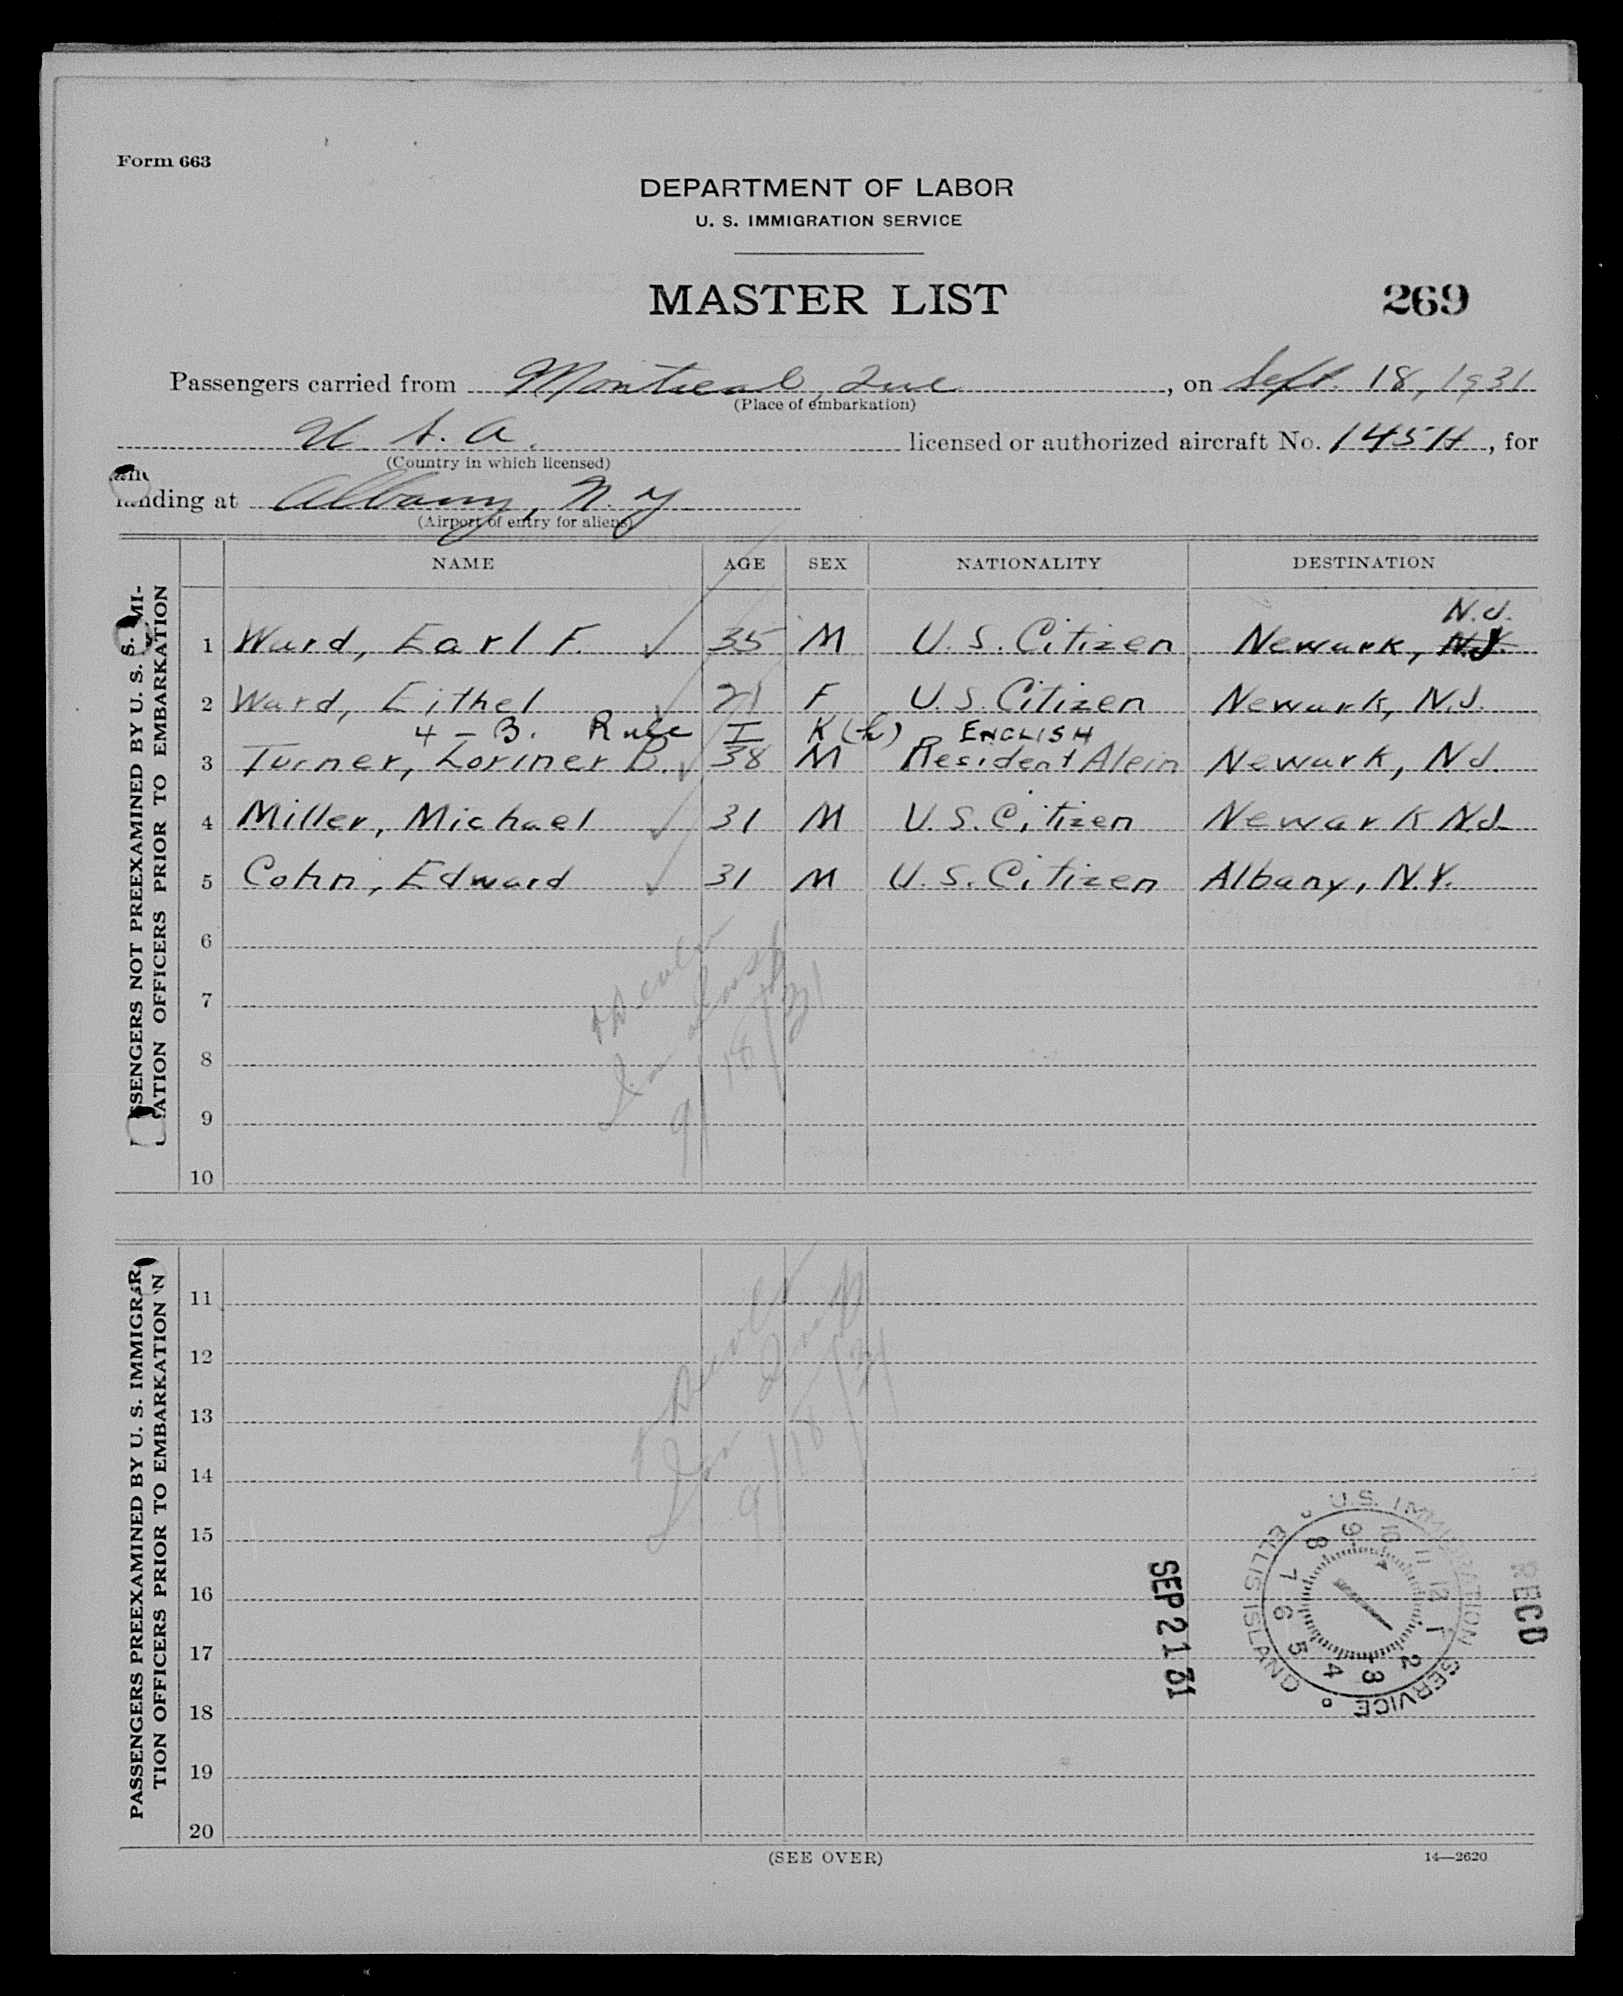 Form 663
DEPARTMENT OF LABOR
U. S. IMMIGRATION SERVICE
MASTER LIST
269
Passengers carried from Montreal, Que , on Sept. 18, 1931
(Place of embarkation)
U. S. A. licensed or authorized aircraft No. 145H , for
(Country in which licensed)
landing at Albany, N. Y
(Airport of entry for aliens)
NAME AGE SEX NATIONALITY DESTINATION
N.J.
1 Ward, Earl F. 35 M U.S. Citizen Newark,
2 Ward, Eithel 21 F U.S. Citizen Newark, N.J.
4 - B. Rule I K(h) ENGLISH
3 Turner, Lorimer D. 38 M Resident Alein Newark, N J.
4 Miller, Michael 31 M U.S. Citizen Newark N.J.
5 Cohn, Edward 31 M U.S. Citizen Albany, N.Y.
6
7
8
9
10
9/18/31
PASSENGERS PREEXAMINED BY U. S. IMMIGRA
TION OFFICERS PRIOR TO EMBARKATION
SSENGERS NOT PREEXAMINED BY U. S. S. MI-
ATION OFFICERS PRIOR TO EMBARKATION
11
12
13
14
15
16
17
18
19
20
9/18/31
SEP 21 31
U.S. IMMIGRATION SERVICE
ELLIS ISLAND
1 2 3 4 5 6 7 8 9 10 11 12
RECD
(SEE OVER)
14—2620